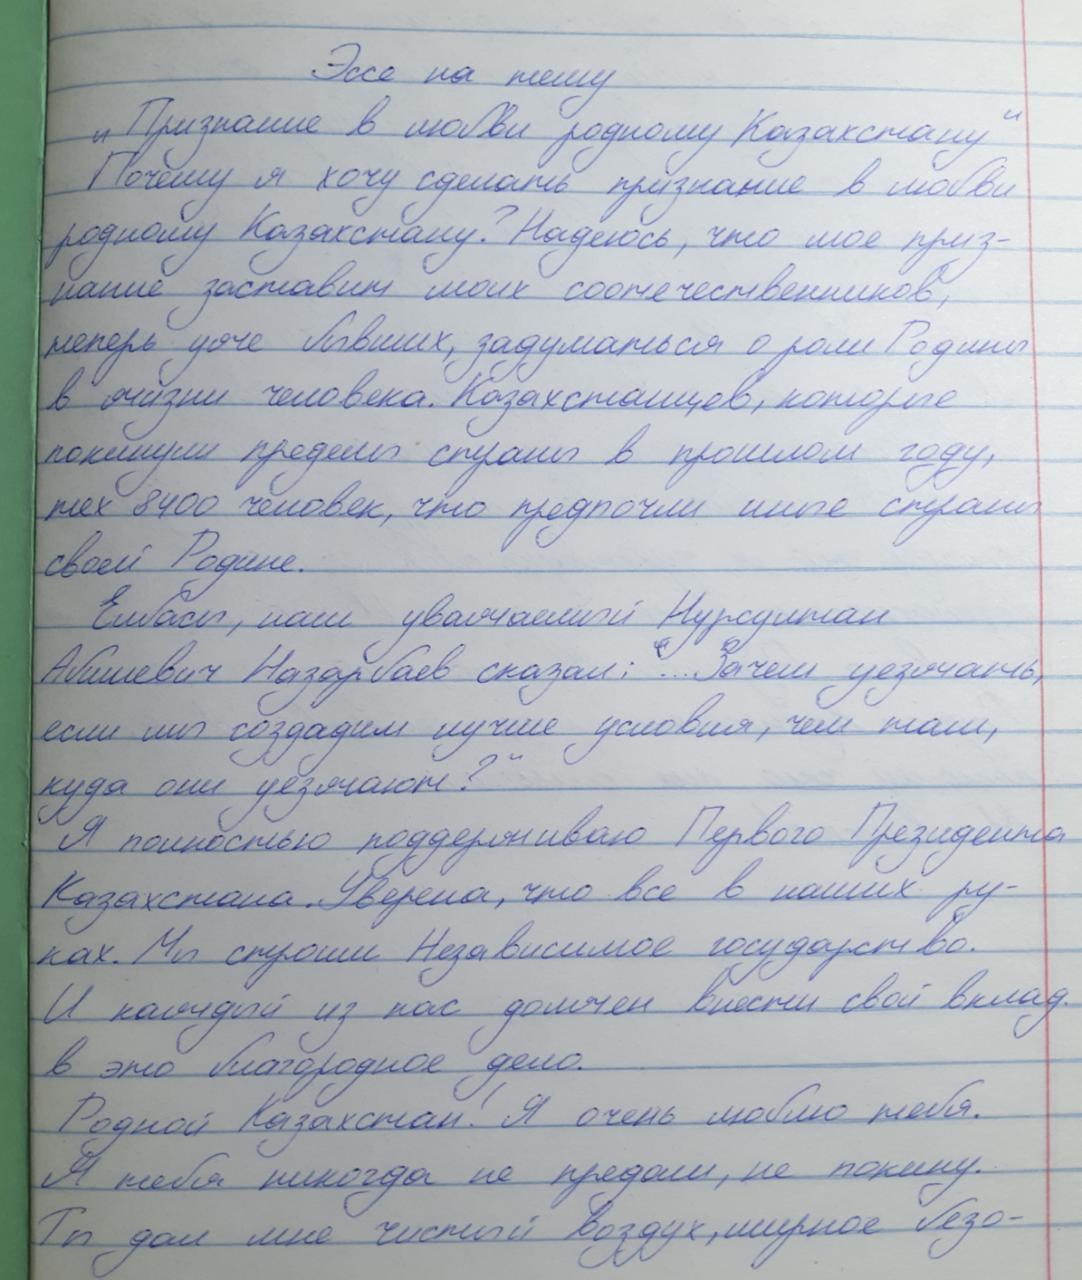 Эссе на тему
"Признание в любви родному Казахстану"
Почему я хочу сделать признание в любви
родному Казахстану? Надеюсь, что мое приз-
нание заставит моих соотечественников,
теперь уже бывших, задуматься о роли Родины
в жизни человека. Казахстанцев, которые
покинули пределы страны в прошлом году,
тех 8400 человек, что предпочли иные страны
своей Родине.
Елбасы, наш уважаемый Нурсултан
Абишевич Назарбаев сказал: "...Зачем уезжать,
если мы создадим лучше условия, чем там,
куда они уезжают?"
Я полностью поддерживаю Первого Президента
Казахстана. Уверена, что все в наших ру-
ках. Мы строим Независимое государство.
И каждый из нас должен внести свой вклад
в это благородное дело.
Родной Казахстан! Я очень люблю тебя.
Я тебя никогда не предам, не покину.
Ты дал мне чистый воздух, мирное безо-